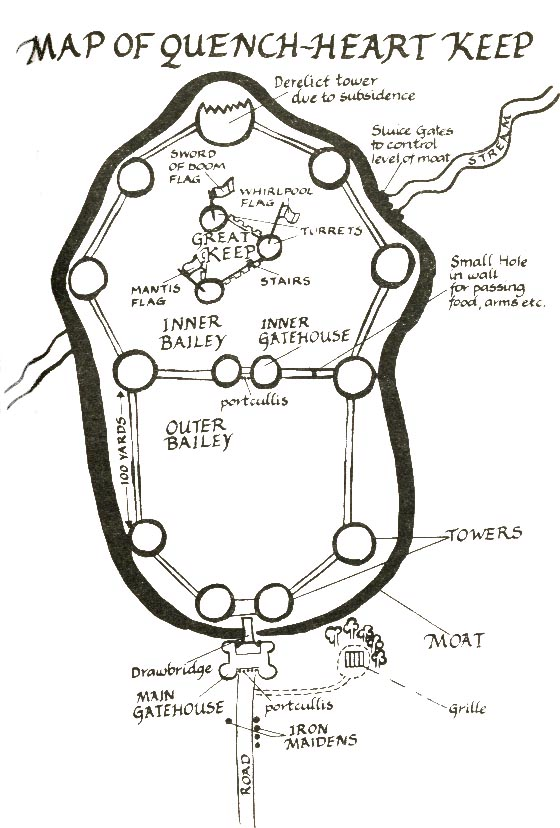 MAP OF QUENCH-HEART KEEP
Derelict tower
due to subsidence
Sluice Gates
to control
level of moat
STREAM
SWORD
OF DOOM
FLAG
WHIRLPOOL
FLAG
TURRETS
GREAT
KEEP
STAIRS
MANTIS
FLAG
Small Hole
in wall
for passing
food, arms etc.
INNER
BAILEY
INNER
GATEHOUSE
portcullis
OUTER
BAILEY
100 YARDS
TOWERS
MOAT
Drawbridge
MAIN
GATEHOUSE
portcullis
Grille
IRON
MAIDENS
ROAD